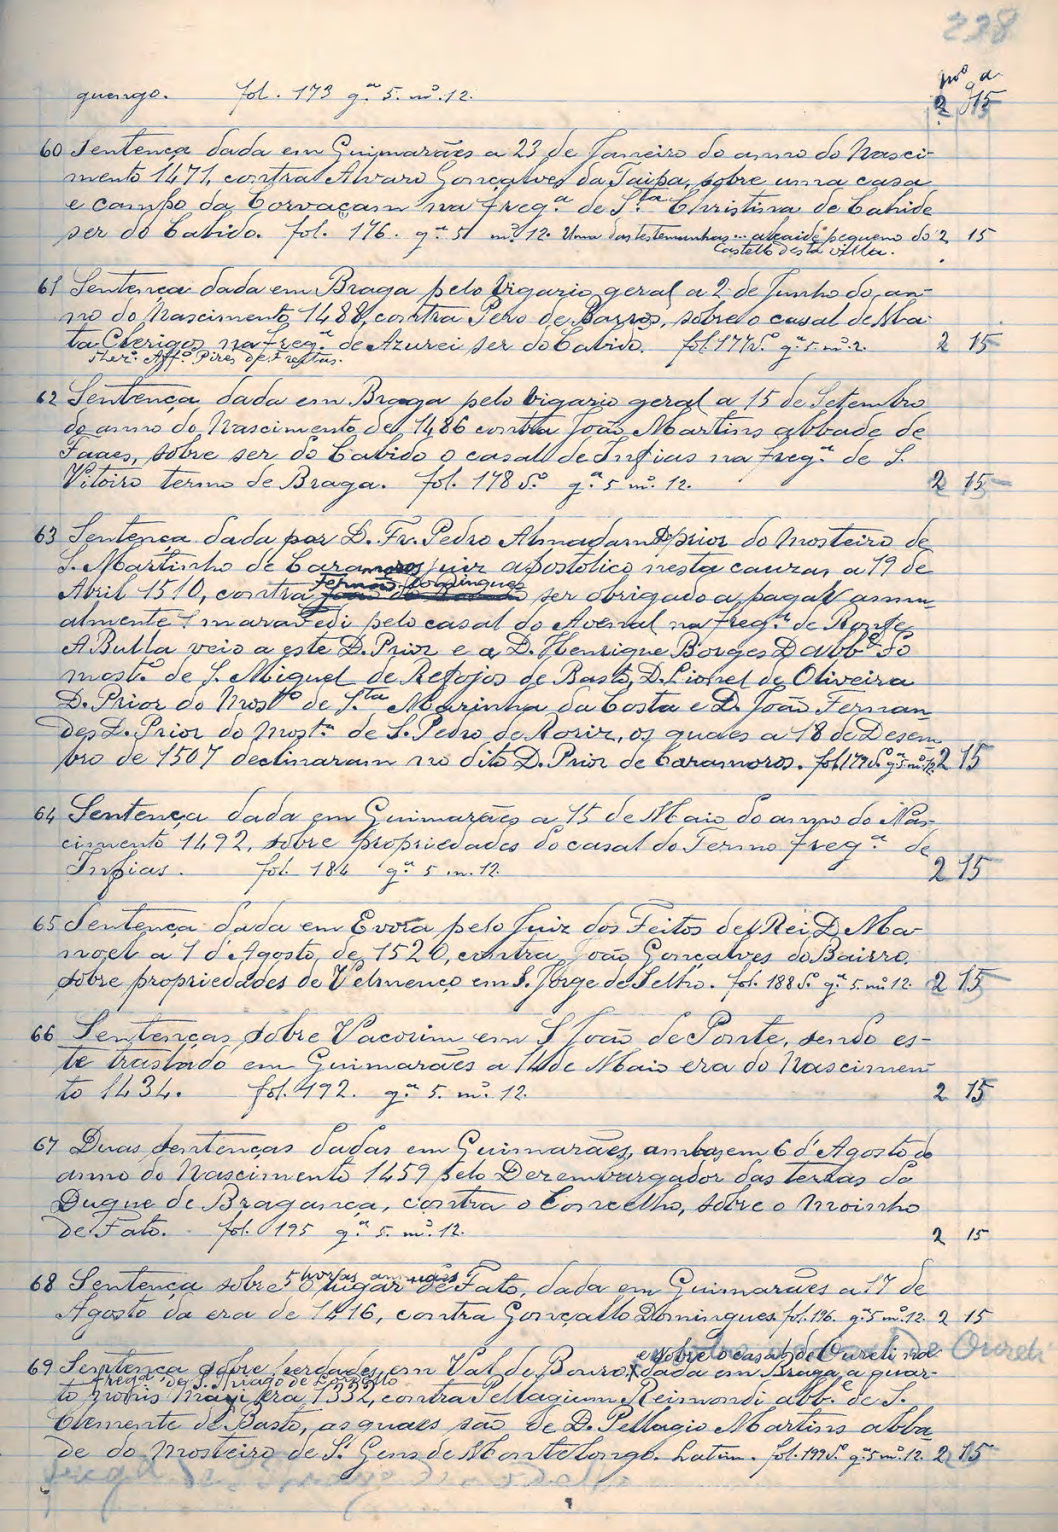 238
mº a
guengo. fol. 173 g.ª 5. mº. 12. 2 15
60 Sentença dada em Guimarães a 23 de Janeiro do anno do Nasci-
mento 1471, contra Alvaro Gonçalves da Taipa, sobre uma casa
e campo da Corvaçam na freg.ª de S.ta Christina de Cahide
ser do Cabido. fol. 176. g.ª 5 mº. 12. Uma das testemunhas... alcaide pequeno do 2 15
Castello desta villa.
61 Sentença dada em Braga pelo Vigario geral a 2 de Junho do an-
no do Nascimento 1488, contra Pero de Barros, sobre o casal de Ma-
ta Cherigos na freg.ª de Azurei ser do Cabido. fol. 177 vº. g.ª 5 mº. 2. 2 15
Aff.º Pires de Freitas.
62 Sentença dada em Braga pelo Vigario geral a 15 de Setembro
do anno do Nascimento de 1486 contra João Martins abbade de
Faaes, sobre ser do Cabido o casal de Infias na freg.ª de S.
Vitoiro termo de Braga. fol. 178 vº. g.ª 5 mº. 12. 2 15
63 Sentença dada por D. Fr. Pedro Almadam D. prior do Mosteiro de
S. Martinho de Caramoros juiz apostolico nesta cauza, a 19 de
Fernão Domingues
Abril 1510, contra ser obrigado a pagar annu-
almente 1 maravedi pelo casal do Avenal na freg.ª de Ronfe.
A Bulla veio a este D. Prior e a D. Henrique Borges D abb.e do
most.º de S. Miguel de Refojos de Basto, D. Lionel de Oliveira
D. Prior do Most.º de S.ta Marinha da Costa e D. João Fernan-
des D. Prior do Most.º de S. Pedro de Roriz, os quaes a 18 de Desem-
bro de 1507 declinaram no dito D. Prior de Caramoros. fol. 179 vº g.ª 5 mº. 12. 2 15
64 Sentença dada em Guimarães a 15 de Maio do anno do Nas-
cimento 1492, sobre propriedades do casal do Termo freg.ª de
Infias. fol. 184 g.ª 5 m. 12. 2 15
65 Sentença dada em Evora pelo Juiz dos Feitos del Rei D. Ma-
noel a 1 d'Agosto de 1520, contra João Gonçalves do Bairro,
sobre propriedades de Velmenço em S. Jorge de Selho. fol. 188 vº. g.ª 5. mº. 12. 2 15
66 Sentenças sobre Vacorim em S João de Ponte, sendo es-
te traslado em Guimarães a 14 de Maio era do Nascimen-
to 1434. fol. 192. g.ª 5. mº. 12. 2 15
67 Duas sentenças dadas em Guimarães, ambas em 6 d'Agosto do
anno do Nascimento 1459 pelo Dezembargador das terras do
Duque de Bragança, contra o Concelho, sobre o moinho
de Fato. fol. 195 g.ª 5. mº. 12. 2 15
5 livras annuaes
68 Sentença sobre o lugar de Fato, dada em Guimarães a 17 de
Agosto da era de 1416, contra Gonçallo Domingues. fol. 196. g.ª 5 mº. 12. 2 15
e sobre o casal de Oureli na
De Oureli
69 Sentença sobre herdades em Val de Bouro, dada em Braga, a quar-
freg.ª de S. Tiago de
to nonis Maii era 1332, contra Pellagium Reimondi abb.e de S.
Clemente de Basto, as quaes são de D. Pellagio Martins abba-
de do Mosteiro de S. Gens de Montelongo. Latim. fol. 199 vº. g.ª 5 mº. 12. 2 15